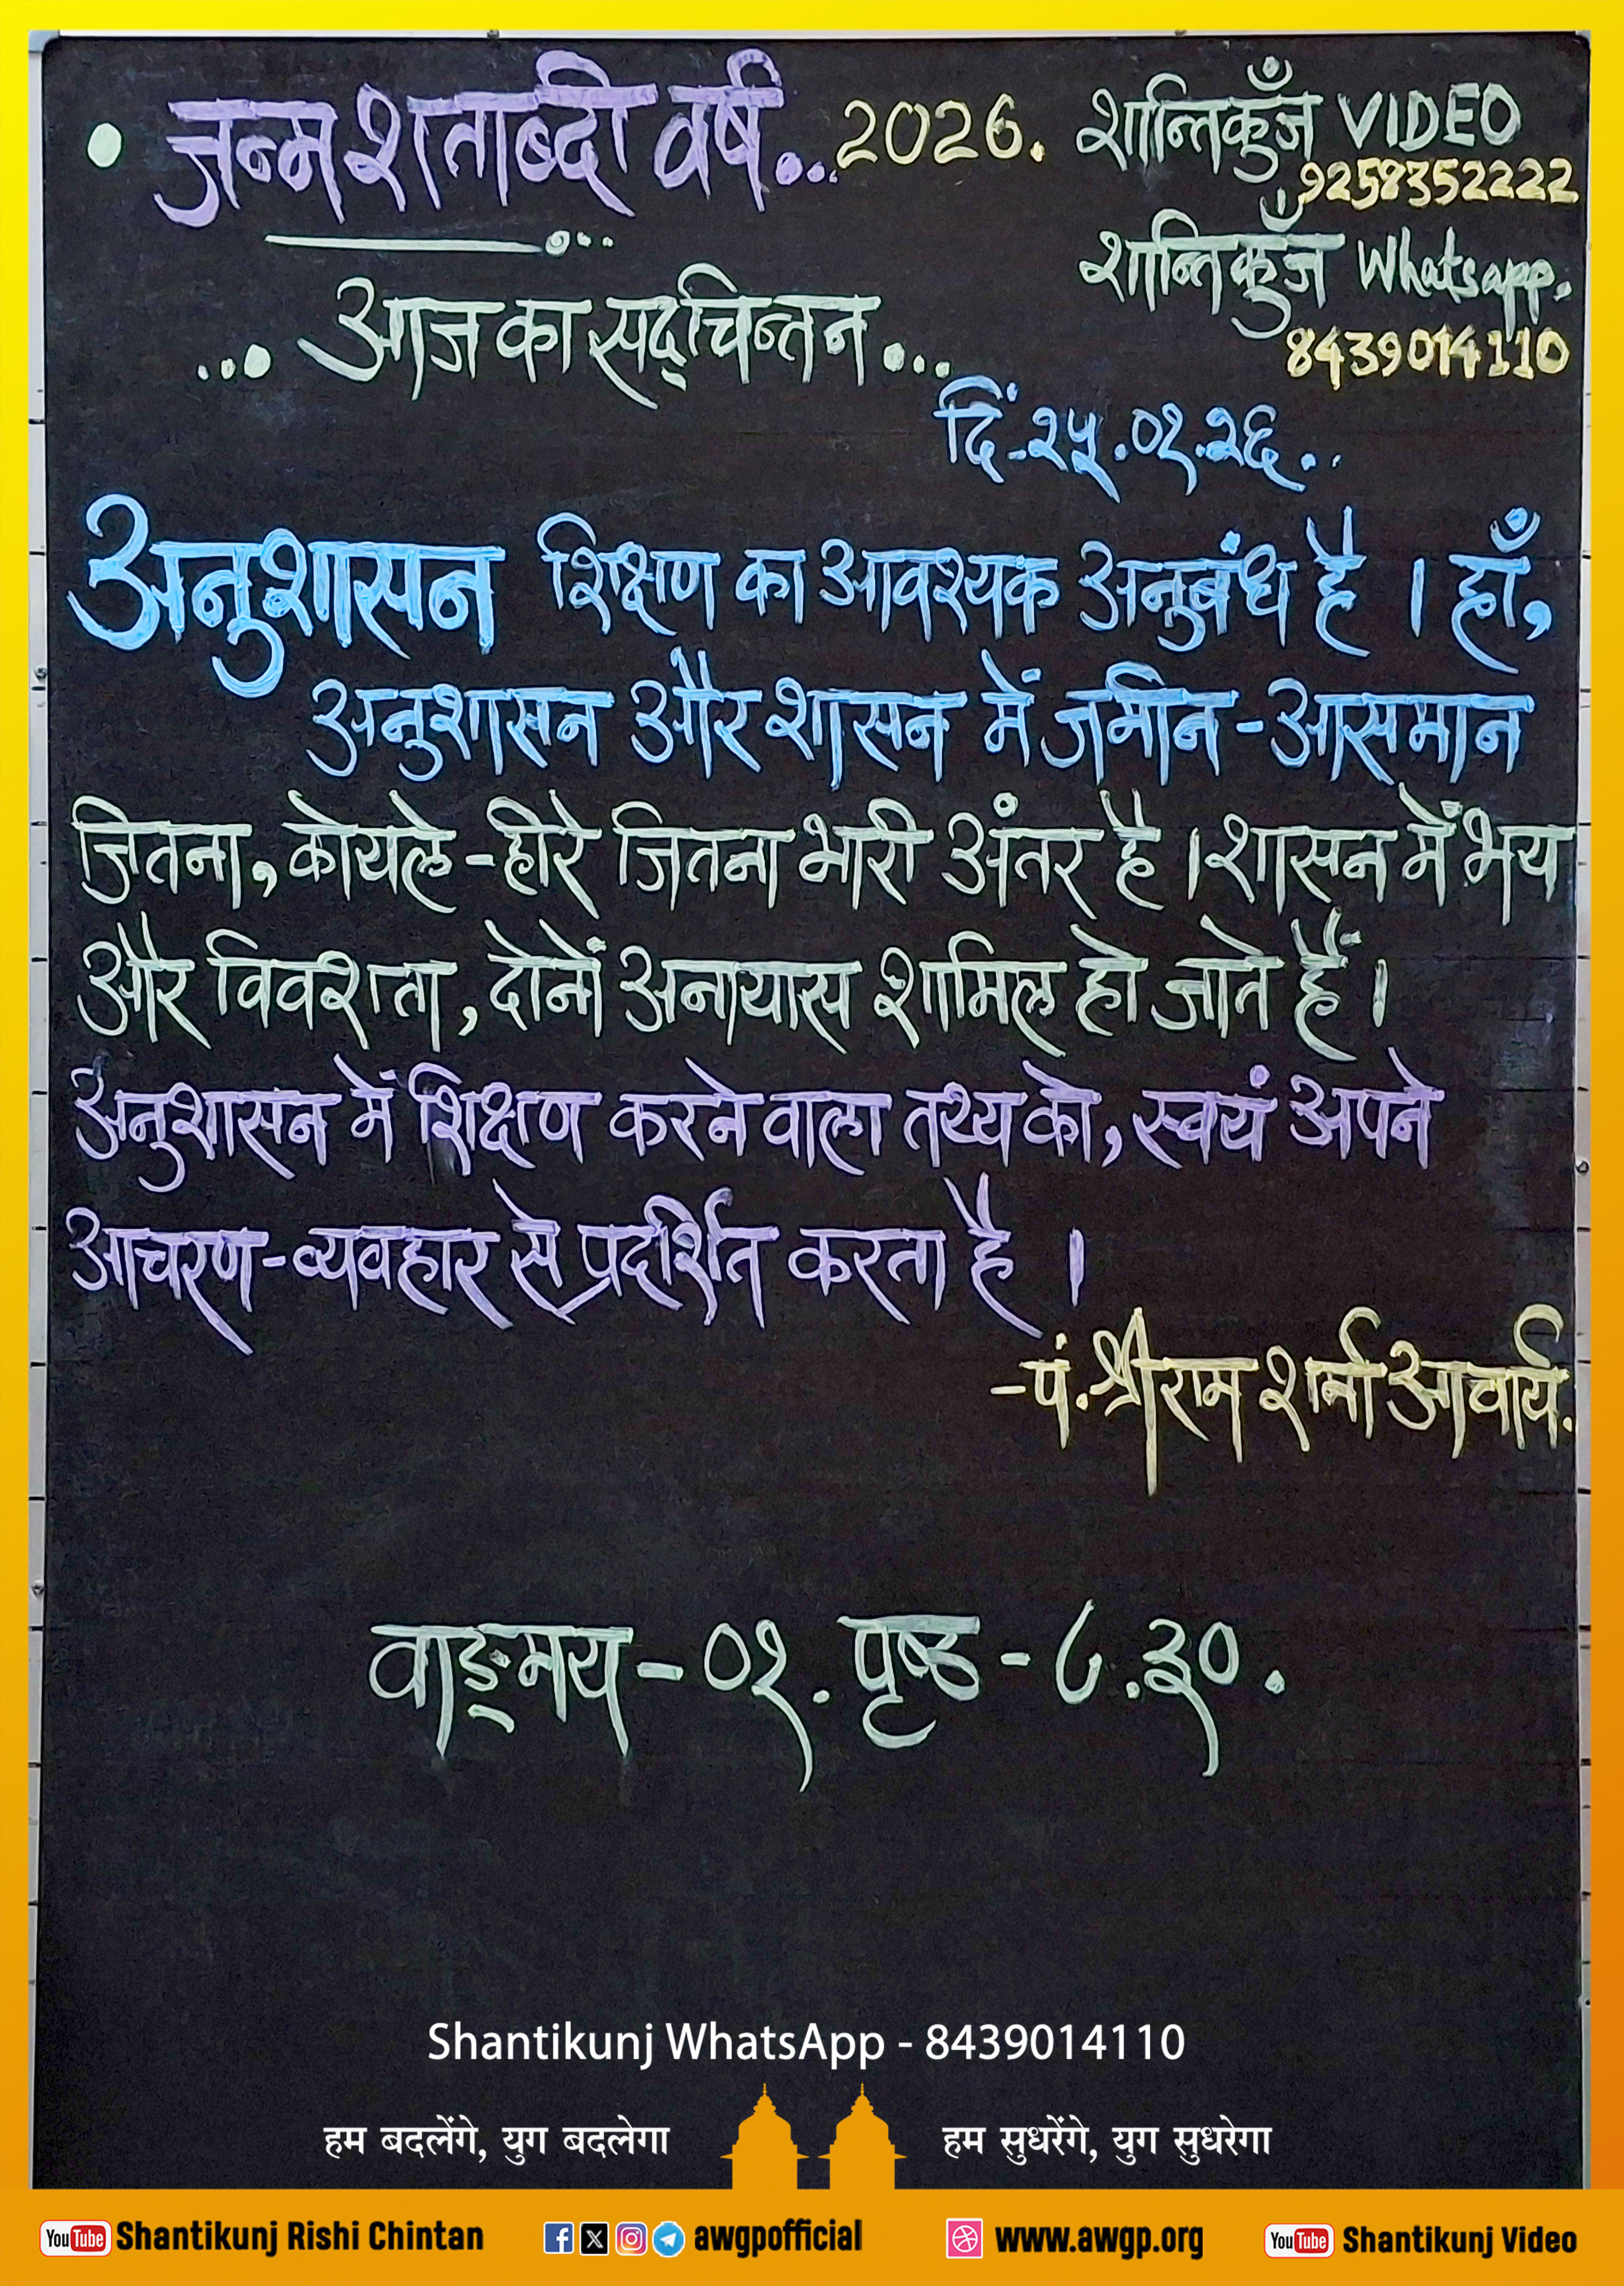 • जन्म शताब्दी वर्ष... 2026.
शान्तिकुँज VIDEO
9258352222
शान्तिकुँज Whatsapp.
8439014110
... आज का सद्‌चिन्तन ...
दिं-२५.०१.२६...
अनुशासन शिक्षण का आवश्यक अनुबंध है । हाँ,
अनुशासन और शासन में जमीन-आसमान
जितना, कोयले-हीरे जितना भारी अंतर है । शासन में भय
और विवशता, दोनों अनायास शामिल हो जाते हैं ।
अनुशासन में शिक्षण करने वाला तथ्य को, स्वयं अपने
आचरण-व्यवहार से प्रदर्शित करता है ।
-पं. श्रीराम शर्मा आचार्य.
वाङ्मय-०१. पृष्ठ-८.३०.
Shantikunj WhatsApp - 8439014110
हम बदलेंगे, युग बदलेगा हम सुधरेंगे, युग सुधरेगा
YouTube Shantikunj Rishi Chintan awgpofficial www.awgp.org YouTube Shantikunj Video